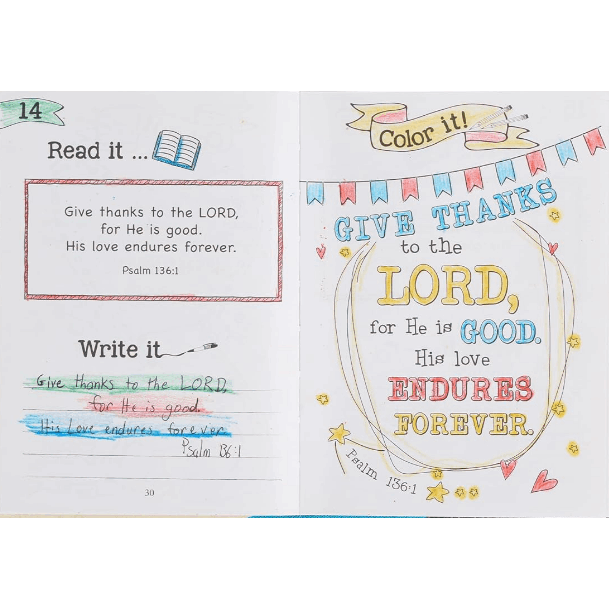 14
Read it ...
Give thanks to the LORD,
for He is good.
His love endures forever.
Psalm 136:1
Write it
Give thanks to the LORD,
for He is good.
His Love endures forever.
Psalm 136:1
30
Color it!
GIVE THANKS
to the
LORD,
for He is GOOD.
His love
ENDURES
FOREVER.
Psalm 136:1